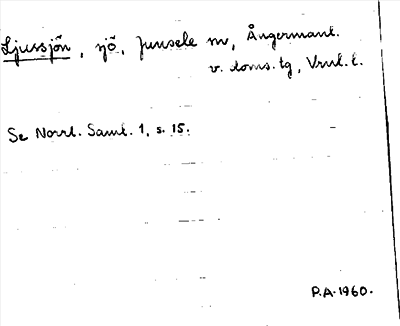 Ljussjön, sjö, Junsele sn, Ångermanl.
v. doms. tg, Vnl. l.
Se Norrl. Saml. 1, s. 15.
P.A. 1960.